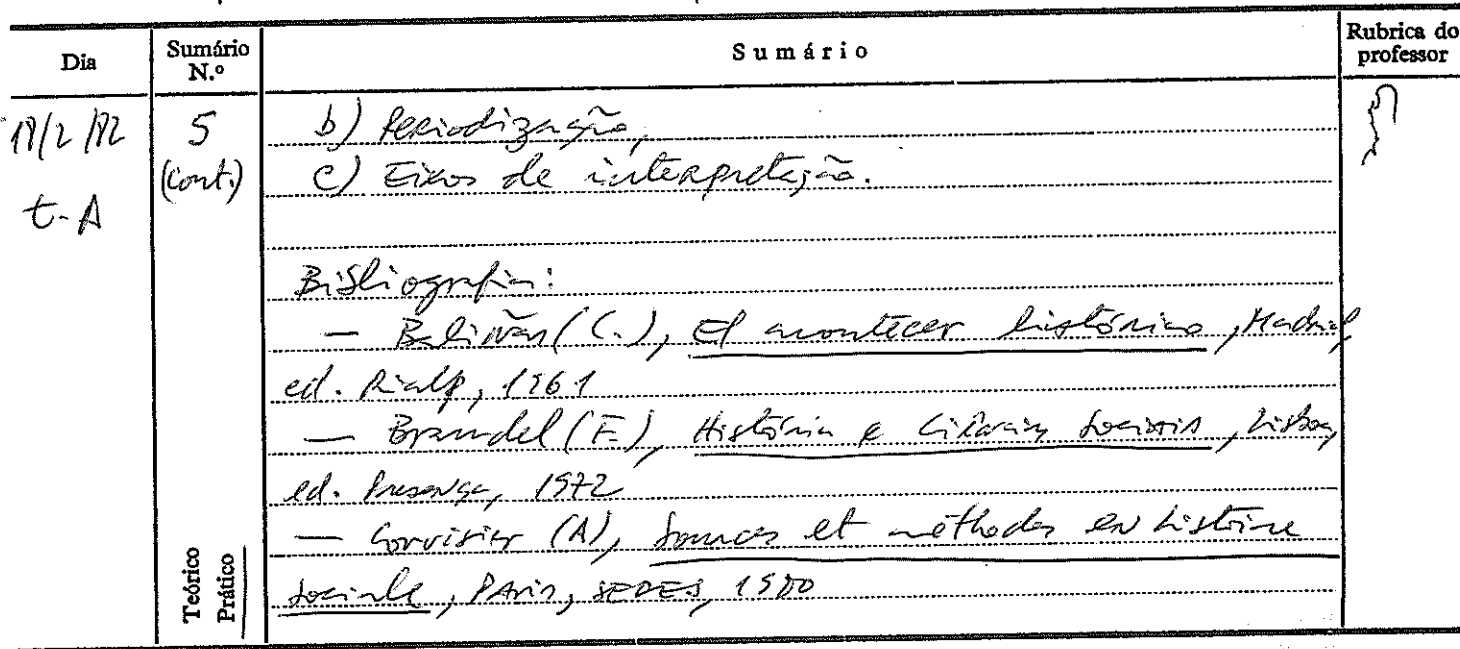 Dia Sumário N.º Sumário Rubrica do professor
18/2/82 5 b) Periodização,
(cont.) c) Eixos de interpretação.
t-A
Bibliografia:
— Baliñas (C.), El acontecer histórico, Madrid,
ed. Rialp, 1961
— Braudel (F.), História e Ciências Sociais, Lisboa,
ed. Presença, 1972
— Corvisier (A), Sources et méthodes en histoire
sociale, Paris, SEDES, 1980
Teórico
Prático